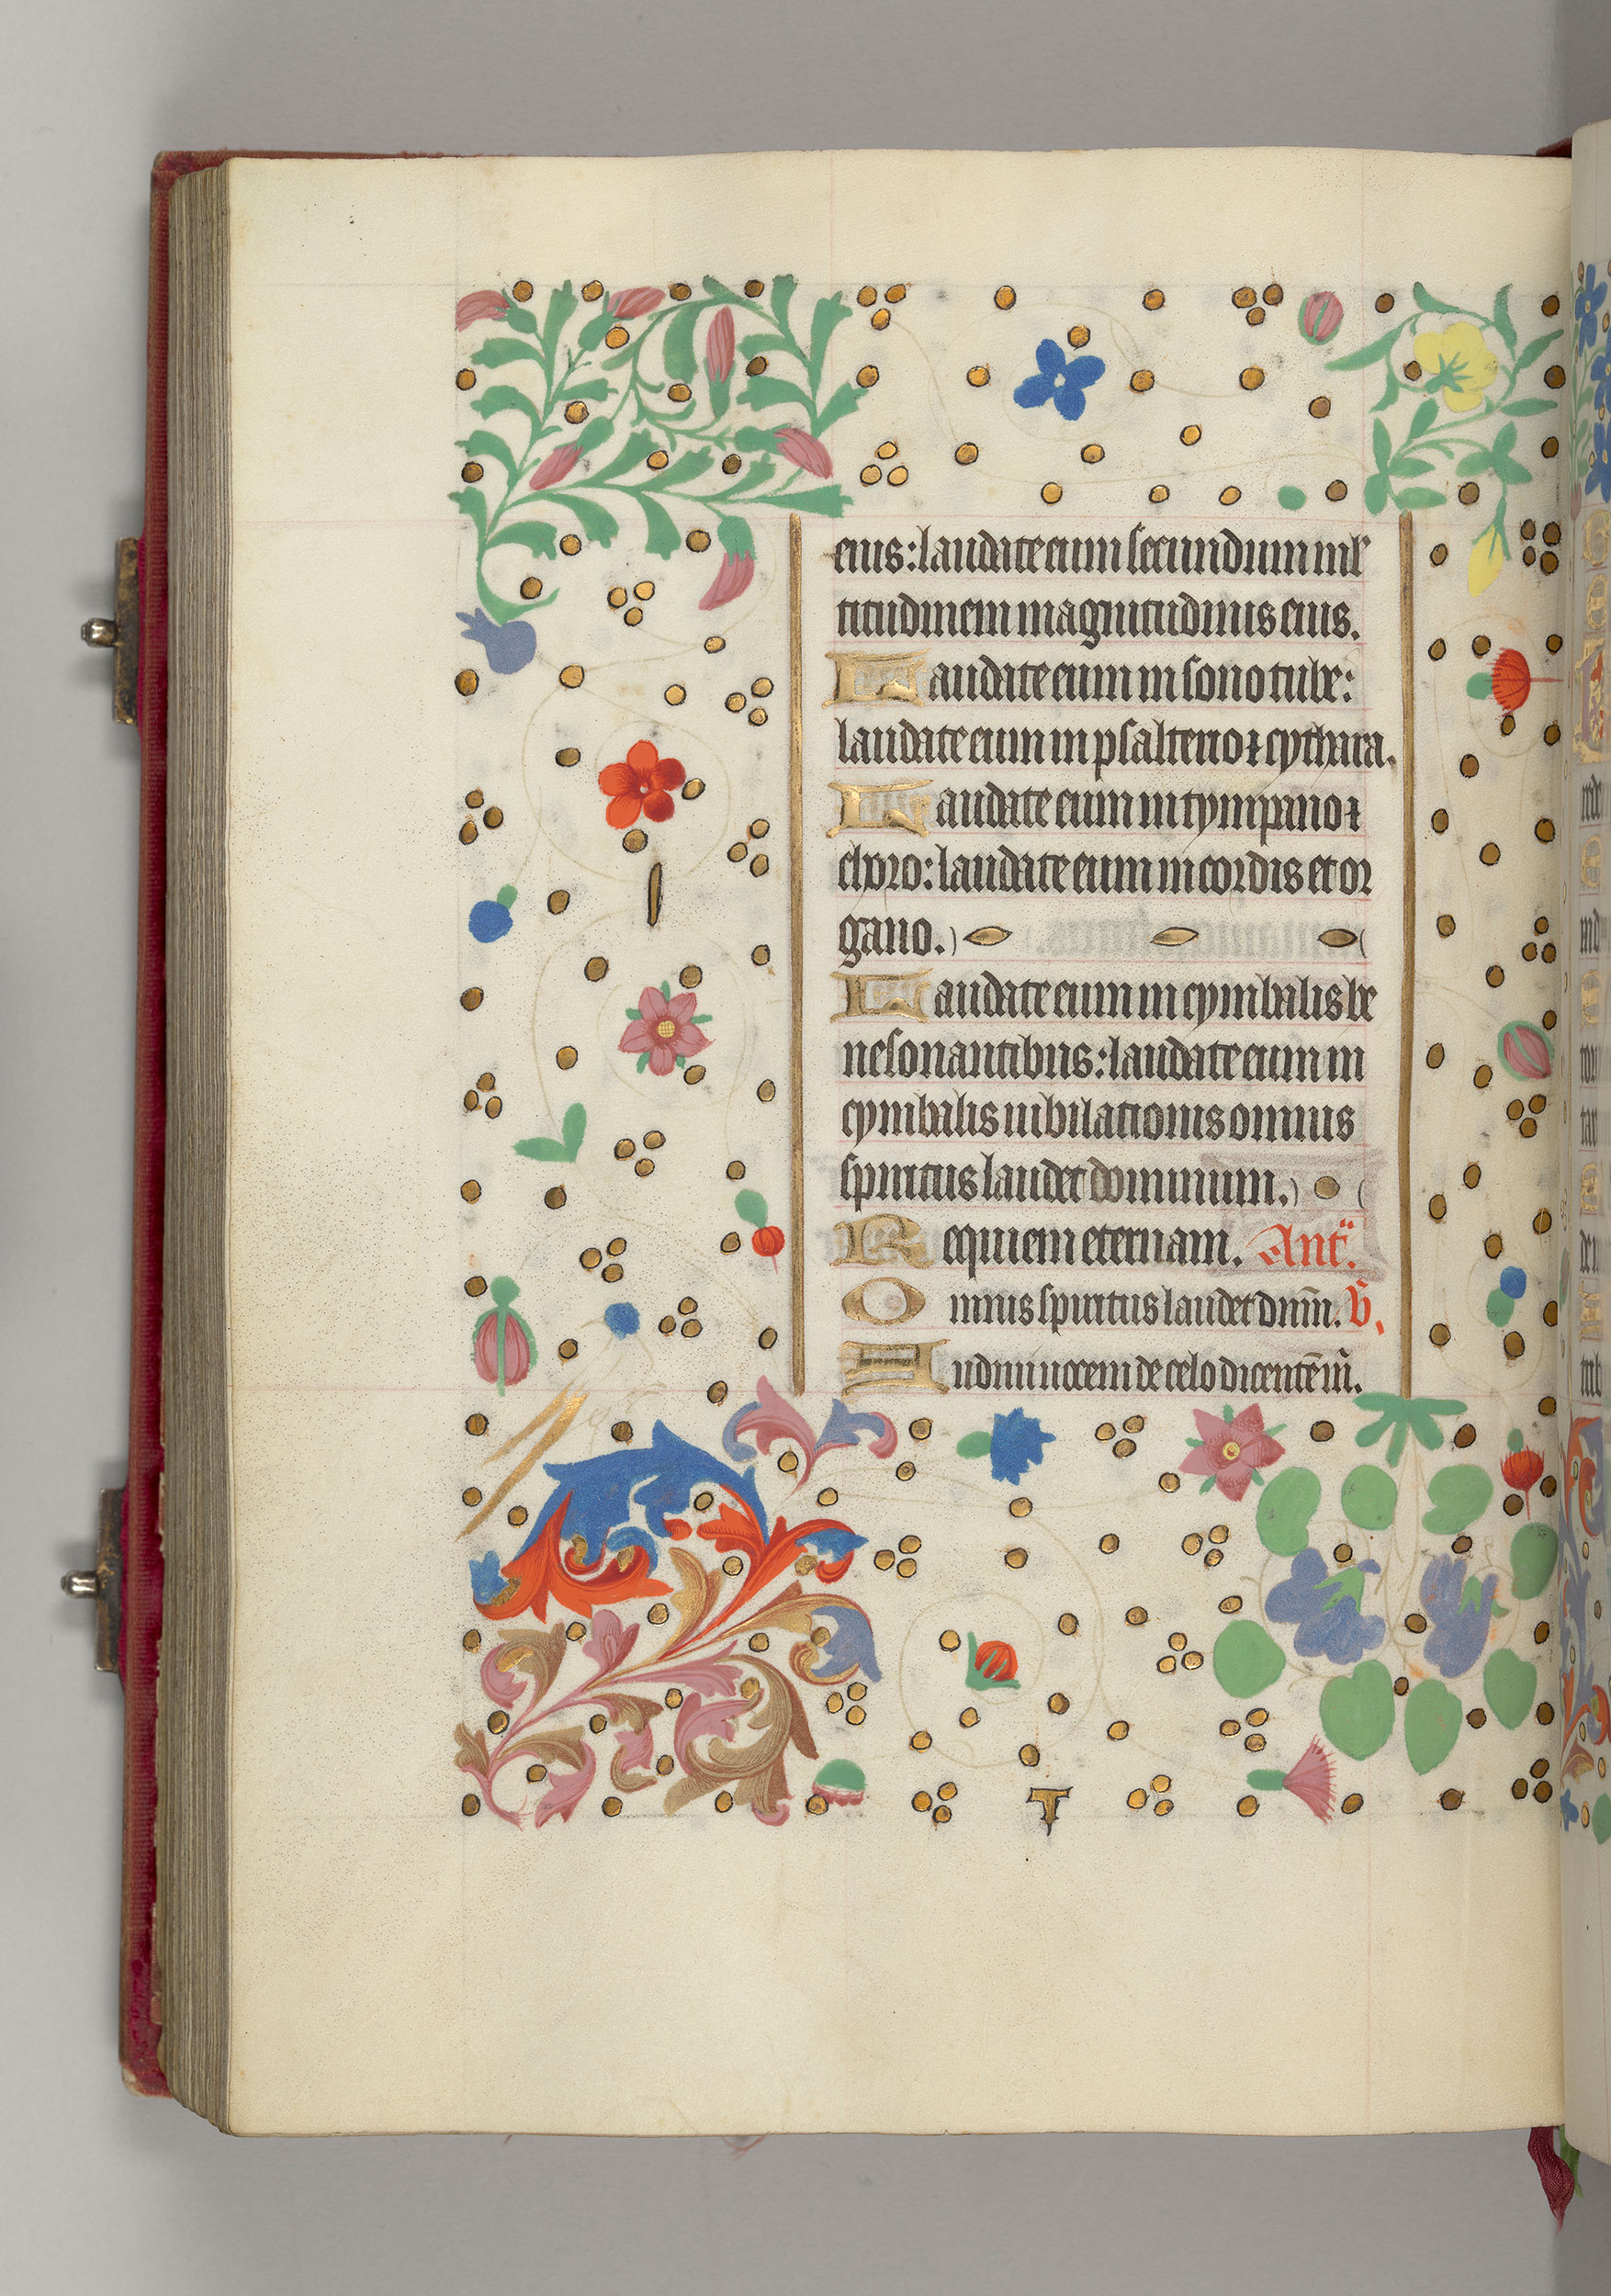 eius: laudate eum secundum ml̄
titudinem magnitudinis eius.
Laudate eum in sono tube:
laudate eum in psalterio ⁊ cythara.
Laudate eum in tympano ⁊
choro: laudate eum in cordis et or
gano.
Laudate eum in cymbalis be
nesonantibus: laudate eum in
cymbalis iubilationis omnis
spiritus laudet dominum.
Requiem eternam. Ant̄.
Omnis spiritus laudet dn̄m. v̄.
Audiui uocem de celo dicentē m̄.